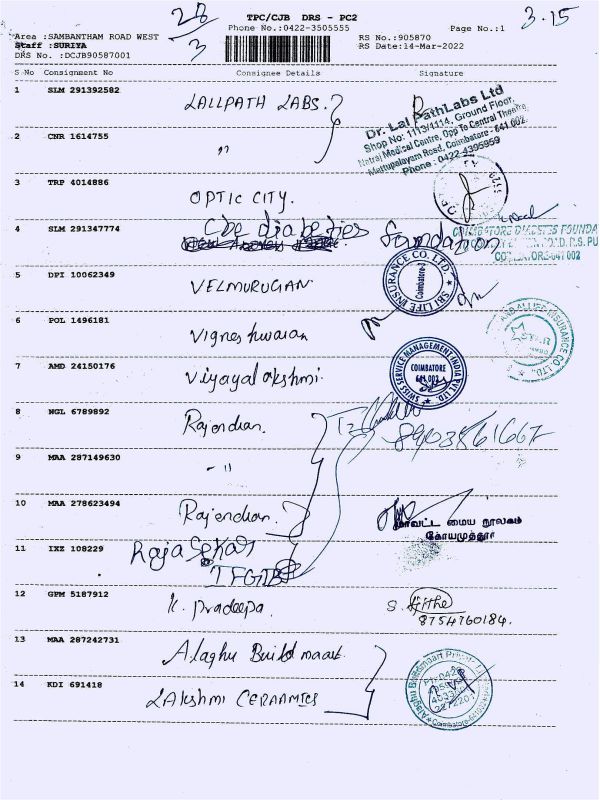 28
3
TPC/CJB DRS - PC2
3.15
Phone No.:0422-3505555
Page No.:1
Area :SAMBANTHAM ROAD WEST
RS No.:905870
Staff :SURIYA
RS Date:14-Mar-2022
DRS No. :DCJB90587001
S No Consignment No Consignee Details Signature
1 SLM 291392582 LALLPATH LABS.
Dr. Lal PathLabs Ltd
Shop No: 1113/1114, Ground Floor,
Natraj Medical Centre, Opp To Central Theatre,
Mettupalayam Road, Coimbatore - 641 002.
Phone : 0422-4395959
2 CNR 1614755 "
3 TRP 4014886 OPTIC CITY.
4 SLM 291347774 Cbe diabeties foundation
COIMBATORE DIABETES FOUNDA
COIMBATORE-641 002
5 DPI 10062349 VELMURUGAN
SBI LIFE INSURANCE CO. LTD.
Coimbatore
6 POL 1496181 Vigneshwaran
AND ALLIED INSURANCE CO. LTD.
7 AMD 24150176 Viyayalakshmi.
SWISS SERVICE MANAGEMENT INDIA PVT LTD
COIMBATORE
641 002
8 NGL 6789892 Rajendran.
9 MAA 287149630 - "
10 MAA 278623494 Rajendran.
மாவட்ட மைய நூலகம்
கோயமுத்தூர்
11 IXE 108229 RajaSekar
12 GPM 5187912 K. Pradeepa.
8754760184.
13 MAA 287242731 Alaghu Build maart.
14 KDI 691418 LAkshmi CERAAMICS
Alaghu Buildmaart Private
Coimbatore